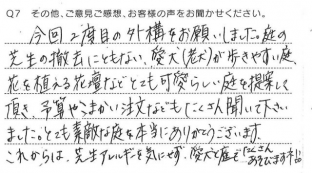 Q7 その他、ご意見ご感想、お客様の声をお聞かせください。
今回2度目の外構をお願いしました。庭の
芝生の撤去にともない、愛犬(老犬)が歩きやすい庭、
花を植える花壇などとても可愛らしい庭を提案して
頂き、予算やこまかい注文などもたくさん聞いて下さい
ました。とても素敵な庭を本当にありがとうございます。
これからは、芝生アレルギーを気にせず、愛犬と庭でたくさん
あそびます